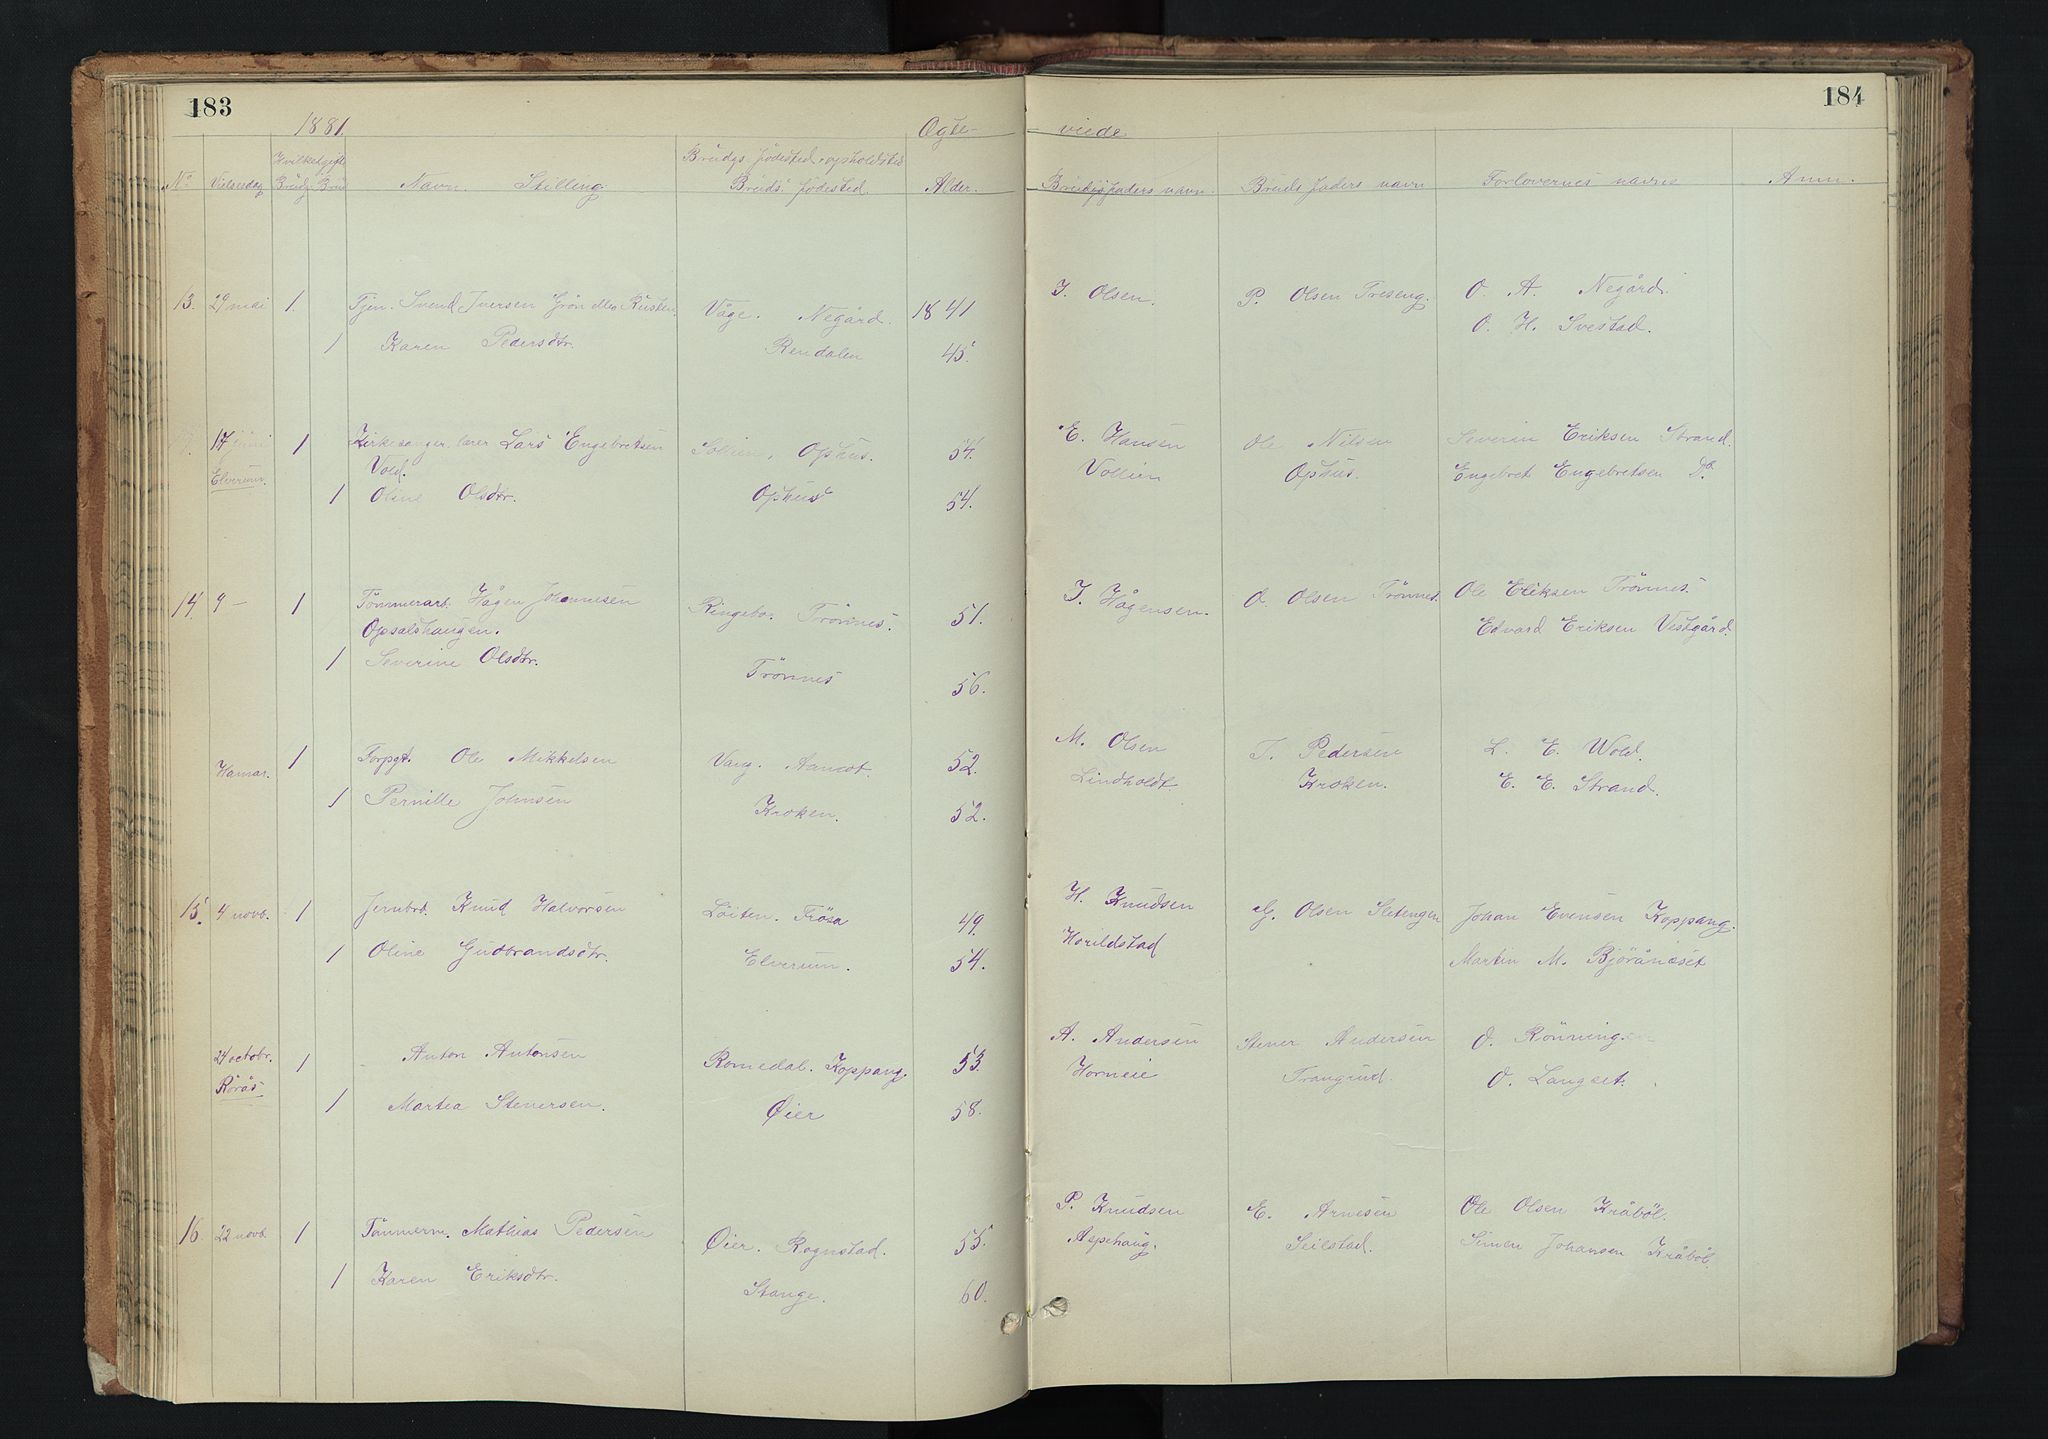 183
184
1881.
Ogte-
viede
Hvilketgift
Brudgs. fødested, opholdsted
No Vielsesdag Brudg Brud Navn. Stilling. Bruds fødested. Alder. Brudgs faders navn. Bruds faders navn Forlovernes navne Anm.
13. 29 mai 1. Tjen. Svend Iversen Grön eller Rusten. Våge. Negård. 1841 I. Olsen. P. Olsen Treseng. O. A. Negård.
O. H. Svestad.
1 Karen Pedersdtr. Rendalen 45.
17 juni 1 Kirkesanger, lærer Lars Engebretsen Sollien, Ophus. 54. E. Hansen Ole Nilsen Severin Eriksen Strand.
Elverum. Vold. Vollien Ophus. Engebret Engebretsen Do.
1 Oline Olsdtr. Ophus 54.
14. 9 — 1 Tömmerarb. Hågen Johannesen Ringebo. Trönnes. 51. J. Hågensen. O. Olsen Trönnes. Ole Eriksen Trönnes.
Opsalshaugen. Edvard Eriksen Vestgård.
1 Severine Olsdtr. Trönnes 56.
Hamar. 1 Forpgt. Ole Mikkelsen Vang. Aamot. 52. M. Olsen J. Pedersen L. E. Wold.
Lindholdt. Kroken. E. E. Strand.
1 Pernille Johnsen Kroken. 52.
15. 4 novb. 1 Jernbrb. Knud Halvorsen Löiten. Trösa 49. H. Knudsen G. Olsen Sletengen Johan Evensen Koppang.
Horildstad Martin M. Björånæset
1 Oline Gudbrandsdtr. Elverum. 54.
24 octobr. 1 Anton Antonsen Romedal. Koppang. 53. A. Andersen Stener Andersen O. Rönningen
Rörås Horneie Trangrud. O. Langset.
1 Martea Stenersen. Øier 58.
16 22 novb. 1 Tömmerm. Mathias Pedersen Øier. Rognstad. 55. P. Knudsen E. Arnesen Ole Olsen Kråböl.
Aspehaug. Seilstad. Simen Johansen Kråböl.
1 Karen Eriksdtr. Stange. 60.